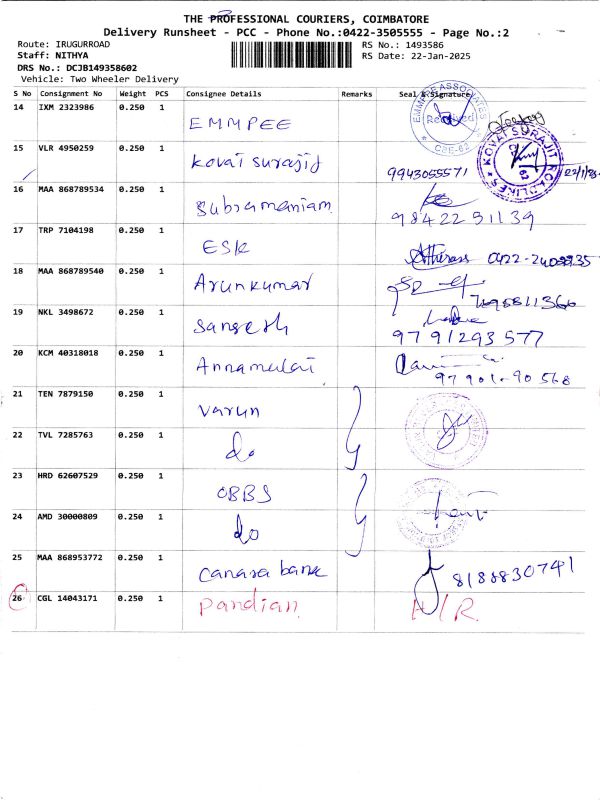 THE PROFESSIONAL COURIERS, COIMBATORE
Delivery Runsheet - PCC - Phone No.:0422-3505555 - Page No.:2
Route: IRUGURROAD RS No.: 1493586
Staff: NITHYA RS Date: 22-Jan-2025
DRS No.: DCJB149358602
Vehicle: Two Wheeler Delivery
S No Consignment No Weight PCS Consignee Details Remarks Seal & Signature
14 IXM 2323986 0.250 1 EMMPEE EMMPEE ASSOCIATES Received CBE-62
15 VLR 4950259 0.250 1 Kovai Surajit 9943055571 KOVAI SURAJIT ROLOLIKES 62
16 MAA 868789534 0.250 1 Subramaniam 9842291139
17 TRP 7104198 0.250 1 ESK
18 MAA 868789540 0.250 1 Arunkumar
19 NKL 3498672 0.250 1 Sangesh 9791293577
20 KCM 40318018 0.250 1 Annamalai 97901-90568
21 TEN 7879150 0.250 1 Varun
22 TVL 7285763 0.250 1 do
23 HRD 62607529 0.250 1 OBBS
24 AMD 30000809 0.250 1 do
25 MAA 868953772 0.250 1 Canara bank 8188830741
26 CGL 14043171 0.250 1 Pandian H/R